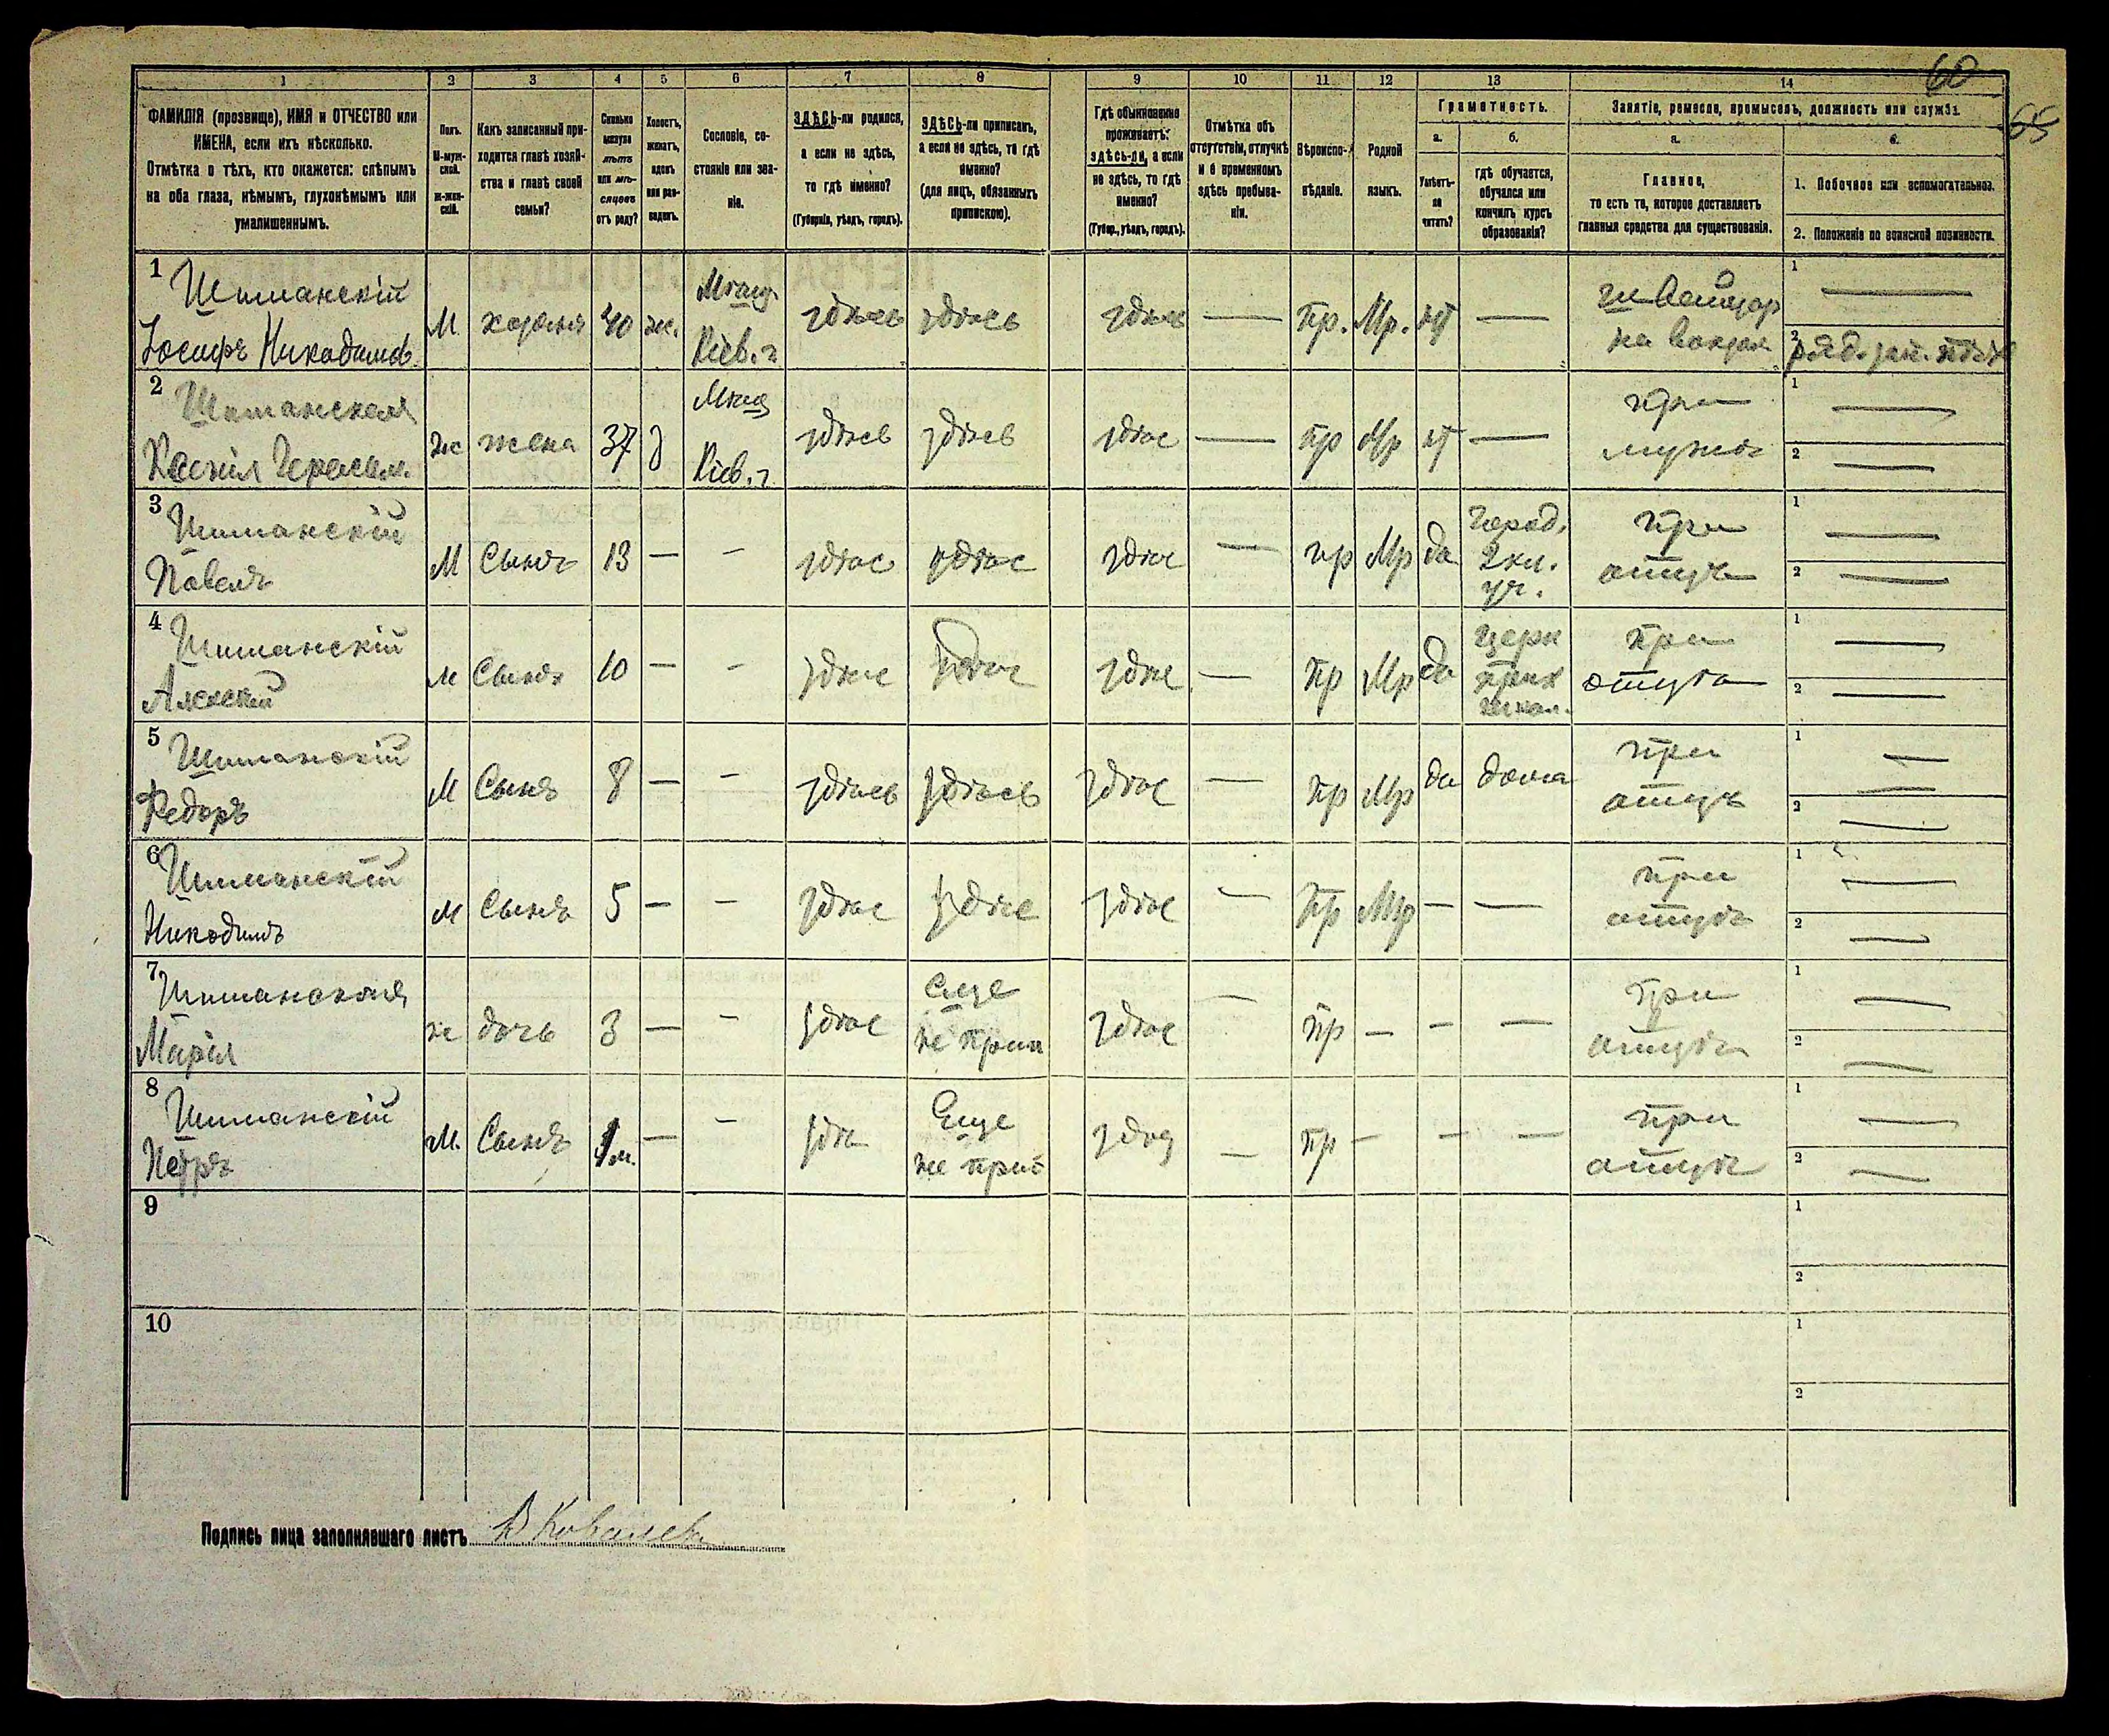 60
65
1 2 3 4 5 6 7 8 9 10 11 12 13 14
ФАМИЛІЯ (прозвище), ИМЯ и ОТЧЕСТВО или
ИМЕНА, если ихъ нѣсколько.
Отмѣтка о тѣхъ, кто окажется: слѣпымъ
на оба глаза, нѣмымъ, глухонѣмымъ или
умалишеннымъ.
Полъ.
М-муж-
ской.
ж-жен-
скій.
Какъ записанный при-
ходится главѣ хозяй-
ства и главѣ своей
семьи?
Сколько
минуло
лѣтъ
или мѣ-
сяцевъ
отъ роду?
Холостъ,
женатъ,
вдовъ
или раз-
веденъ.
Сословіе, со-
стояніе или зва-
ніе.
ЗДѢСЬ-ли родился,
а если не здѣсь,
то гдѣ именно?
(Губернія, уѣздъ, городъ).
ЗДѢСЬ-ли приписанъ,
а если не здѣсь, то гдѣ
именно?
(для лицъ, обязанныхъ
припискою).
Гдѣ обыкновенно
проживаетъ:
здѣсь-ли, а если
не здѣсь, то гдѣ
именно?
(Губер., уѣздъ, городъ).
Отмѣтка объ
отсутствіи, отлучкѣ
и о временномъ
здѣсь пребыва-
ніи.
Вѣроиспо-
вѣданіе.
Родной
языкъ.
Грамотность.
а. б.
Умѣетъ-
ли
читать?
гдѣ обучается,
обучался или
кончилъ курсъ
образованія?
Занятіе, ремесло, промыселъ, должность или служба.
а. б.
Главное,
то есть то, которое доставляетъ
главныя средства для существованія.
1. Побочное или вспомогательное.
2. Положеніе по воинской повинности.
1 Шиманскій
Іосифъ Никодимов.
М. хозяинъ 40 ж.
Мѣщ.
Кіев. г.
здѣсь здѣсь здѣсь — пр. Мр. —
швейцар
на вокзал
1 —
2 ряд. зап.
2 Шиманская
Ксенія Герасим.
ж жена 37 з
Мѣщ
Кіев. г.
здѣсь здѣсь здѣс — пр Мр —
при
мужѣ
1 —
2 —
3 Шиманскій
Павелъ
М Сынъ 13 — — здѣс здѣс здѣс — пр Мр да
город.
2 кл.
уч.
при
отцѣ
1 —
2 —
4 Шиманскій
Алексѣй
м Сынъ 10 — — здѣс здѣс здѣс — пр Мр да
церк
прих
школ.
при
отцѣ
1 —
2 —
5 Шиманскій
Федоръ
М Сынъ 8 — — здѣсь здѣсь здѣс — пр Мр да дома
при
отцѣ
1 —
2 —
6 Шиманскій
Никодимъ
м Сынъ 5 — — здѣс здѣс здѣс — пр Мр — —
при
отцѣ
1 —
2 —
7 Шиманская
Марія
ж дочь 3 — — здѣс
еще
не прип
здѣс — пр — — —
при
отцѣ
1 —
2 —
8 Шиманскій
Петръ
М. Сынъ 1 м. — — здѣс
Еще
не прип
здѣс — пр — — —
при
отцѣ
1 —
2 —
9
1
2
10
1
2
Подпись лица заполнявшаго листъ В Ковалев